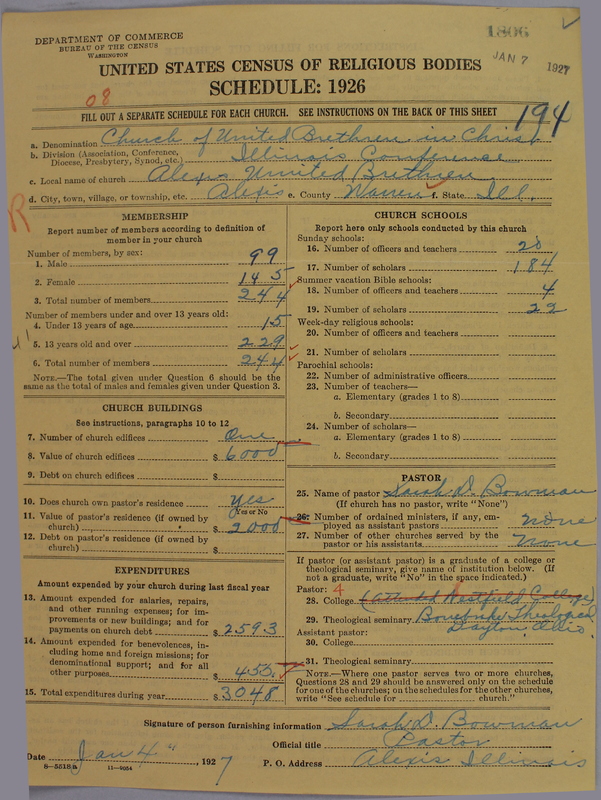 DEPARTMENT OF COMMERCE
BUREAU OF THE CENSUS
WASHINGTON
1806
JAN 7 1927
UNITED STATES CENSUS OF RELIGIOUS BODIES
SCHEDULE: 1926
08
FILL OUT A SEPARATE SCHEDULE FOR EACH CHURCH. SEE INSTRUCTIONS ON THE BACK OF THIS SHEET
194
a. Denomination Church of United Brethren in Christ
b. Division (Association, Conference, Diocese, Presbytery, Synod, etc.) Illinois Conference
c. Local name of church Alexis United Brethren
d. City, town, village, or township, etc. Alexis e. County Warren f. State Ill.
R
MEMBERSHIP
Report number of members according to definition of member in your church
Number of members, by sex:
1. Male 99
2. Female 145
3. Total number of members 244
Number of members under and over 13 years old:
4. Under 13 years of age 15
5. 13 years old and over 229
6. Total number of members 244
NOTE.—The total given under Question 6 should be the same as the total of males and females given under Question 3.
CHURCH BUILDINGS
See instructions, paragraphs 10 to 12
7. Number of church edifices One
8. Value of church edifices $ 6000
9. Debt on church edifices $
10. Does church own pastor's residence yes
Yes or No
11. Value of pastor's residence (if owned by church) $ 2000
12. Debt on pastor's residence (if owned by church) $
EXPENDITURES
Amount expended by your church during last fiscal year
13. Amount expended for salaries, repairs, and other running expenses; for improvements or new buildings; and for payments on church debt $ 2593
14. Amount expended for benevolences, including home and foreign missions; for denominational support; and for all other purposes $ 455
15. Total expenditures during year $ 3048
CHURCH SCHOOLS
Report here only schools conducted by this church
Sunday schools:
16. Number of officers and teachers 20
17. Number of scholars 184
Summer vacation Bible schools:
18. Number of officers and teachers 4
19. Number of scholars 22
Week-day religious schools:
20. Number of officers and teachers
21. Number of scholars
Parochial schools:
22. Number of administrative officers
23. Number of teachers—
a. Elementary (grades 1 to 8)
b. Secondary
24. Number of scholars—
a. Elementary (grades 1 to 8)
b. Secondary
PASTOR
25. Name of pastor Sarah D. Bowman
(If church has no pastor, write "None")
26. Number of ordained ministers, if any, employed as assistant pastors none
27. Number of other churches served by the pastor or his assistants none
If pastor (or assistant pastor) is a graduate of a college or theological seminary, give name of institution below. (If not a graduate, write "No" in the space indicated.)
Pastor: 4
28. College (Attended Westfield College)
29. Theological seminary Bonebrake Theological
Dayton, Ohio.
Assistant pastor:
30. College
31. Theological seminary
NOTE.—Where one pastor serves two or more churches, Questions 28 and 29 should be answered only on the schedule for one of the churches; on the schedules for the other churches, write "See schedule for church."
Signature of person furnishing information Sarah D. Bowman
Official title Pastor
Date Jan 4", 1927
P. O. Address Alexis Illinois
8—5518a 11—9554